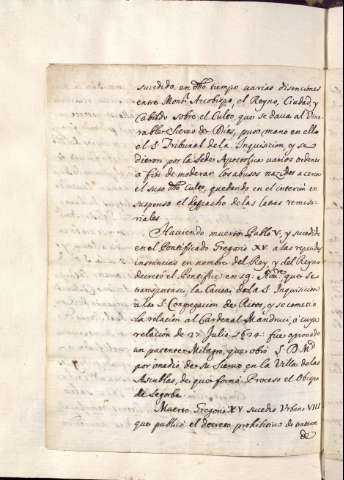 sucedido en dho tiempo varias disenciones
entre Monr Arcobispo, el Reyno, Ciudad, y
Cabildo sobre el Culto, que se dava al Vene
rable Siervo de Dios, puso mano en ello
el S. Tribunal de la Inquisicion, y se
dieron por la Sede Apostolica varios ordenes
a fin de moderar los abusos nacidos acerca
el suso dho Culto, quedando en el interin en
suspenso el despacho de las letras remisi
riales.
Haviendo muerto Pablo V, y sucedido
en el Pontificado Gregorio XV a las repetidas
instancias en nombre del Rey, y del Reyno
decretó el Pontifice en 29 que se
transportara la Causa de la S. Inquisicion
a la S. Congregacion de Ritos, y se cometio
la relacion al Cardenal Mandruci, a cuya
relacion de 27 Julio 1624 fue aprovado
un patente Milagro, que obró S. D. Md
por medio de su Siervo en la Villa de las
de que formó Proceso el Obispo
de Segorbe.
Muerto Gregorio XV sucedio Urbano VIII
que publicó el decreto prohibitivo de
de